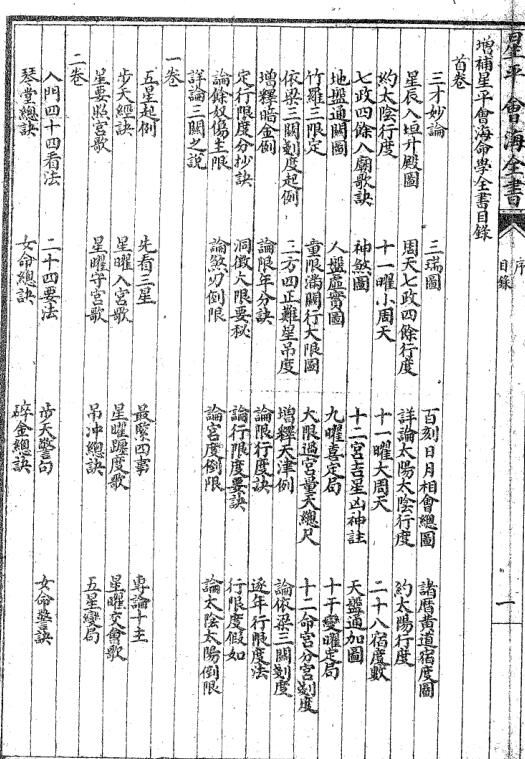 星平會海全書
序
目錄
一
增補星平會海命學全書目錄
首卷
三才妙論 三瑞圖 百刻日月相會總圖 諸曆黃道宿度圖
星辰入垣升殿圖 周天七政四餘行度 詳論太陽太陰行度 約太陽行度
約太陰行度 十一曜小周天 十一曜大周天 二十八宿度數
七政四餘入廟歌訣 神煞圖 十二宮吉星凶神註 天盤通加圖
地盤通關圖 人盤虛實圖 九曜喜定局 十干變曜定局
竹羅三限定 童限滿關行大限圖 大限過宮量天總尺 十二命宮分宮刻度
依梁三關刻度起例 三方四正難星吊度 增釋天津例 論依梁三關刻度
增釋暗金例 論限年分訣 論限行度訣 逐年行限度法
定行限度分抄訣 洞微大限要秘 論行限度要訣 行限度假如
論餘奴傷主限 論煞刃倒限 論宮度倒限 論太陰太陽倒限
詳論三關之說
一卷
五星起例 先看三星 最緊四事 專論十主
步天經訣 星曜入宮歌 星曜躔度歌 星曜交會歌
星要照宮歌 星曜守宮歌 吊冲總訣 五星變局
二卷
入門四十四看法 二十四要法 步天警句 女命警訣
琴堂總訣 女命總訣 碎金總訣